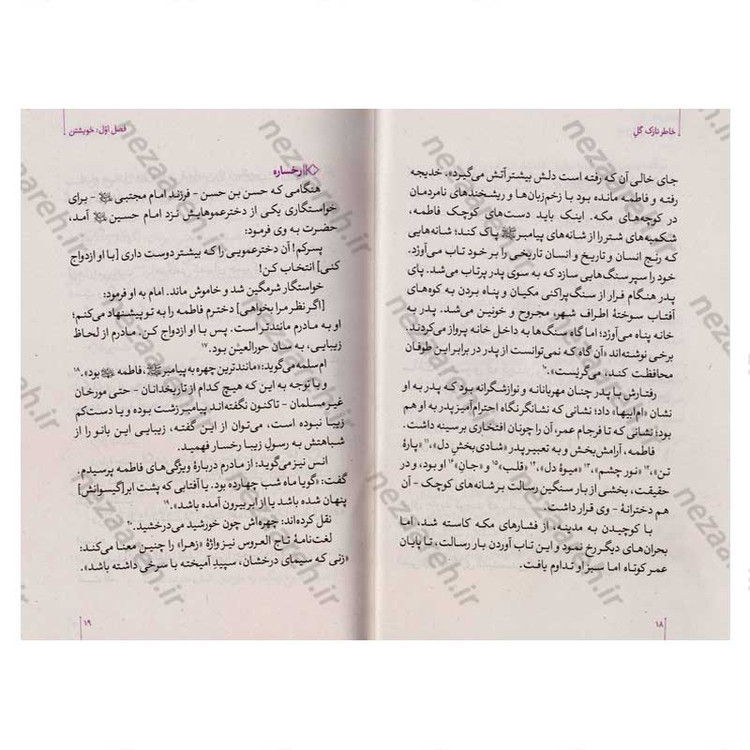 خاطر نازک گل
جای خالی آن که رفته است دلش بیشتر آتش می‌گیرد». خدیجه
رفته و فاطمه مانده بود با زخم‌زبان‌ها و ریشخندهای نامردمان
در کوچه‌های مکه. اینک باید دست‌های کوچک فاطمه،
شکمبه‌های شتر را از شانه‌های پیامبر ﷺ پاک کند؛ شانه‌هایی
که رنج انسان و تاریخ و انسان تاریخی را بر خود تاب می‌آورَد.
خود را سپر سنگ‌هایی سازد که به سوی پدر پرتاب می‌شد. پای
پدر هنگام فرار از سنگ‌پراکنی مکیان و پناه بردن به کوه‌های
آفتاب سوختهٔ اطراف شهر، مجروح و خونین می‌شد. پدر به
خانه پناه می‌آورَد؛ اما گاه سنگ‌ها به داخل خانه پرواز می‌کردند.
برخی نوشته‌اند «آن گاه که نمی‌توانست از پدر در برابر این طوفان
محافظت کند، می‌گریست».۱۰
رفتارش با پدر چنان مهربانانه و نوازشگرانه بود که پدر به او
نشان «ام‌ابیها» داد؛ نشانی که نشانگر نگاه احترام‌آمیز پدر به او هم
بود؛ نشانی که تا فرجام عمر، آن را چونان افتخاری بر سینه داشت.
فاطمه، آرامش‌بخش و به تعبیر پدر «شادی‌بخشِ دل»،۱۱ «پارهٔ
تن»،۱۲ «نور چشم»،۱۳ «میوهٔ دل»،۱۴ «قلب»۱۵ و «جان»۱۶ او بود، و در
حقیقت، بخشی از بار سنگین رسالت بر شانه‌های کوچک - آن
هم دخترانهٔ - وی قرار داشت.
با کوچیدن به مدینه، از فشارهای مکه کاسته شد، اما
بحران‌های دیگر رخ نمود و این تاب آوردن بار رسالت، تا پایان
عمر کوتاه اما سبز او تداوم یافت.
۱۸
فصل اوّل: خویشتن
رخساره
هنگامی که حسن بن حسن - فرزند امام مجتبی - برای
خواستگاری یکی از دخترعموهایش نزد امام حسین آمد،
حضرت به وی فرمود:
پسرکم! آن دخترعمویی را که بیشتر دوست داری [با او ازدواج
کنی] انتخاب کن!
خواستگار شرمگین شد و خاموش ماند. امام به او فرمود:
[اگر نظر مرا بخواهی] دخترم فاطمه را به تو پیشنهاد می‌کنم؛
او به مادرم مانندتر است. پس با او ازدواج کن. مادرم از لحاظ
زیبایی، به سان حورالعین بود.۱۷
ام‌سلمه می‌گوید: «مانندترین چهره به پیامبر ﷺ، فاطمه بود».۱۸
و با توجه به این که هیچ کدام از تاریخدانان - حتی مورخان
غیرمسلمان - تاکنون نگفته‌اند پیامبر زشت بوده و یا دست‌کم
زیبا نبوده است، می‌توان از این گفته، زیبایی این بانو را از
شباهتش به رسولِ زیبا رخسار فهمید.
انس نیز می‌گوید: از مادرم دربارهٔ ویژگی‌های فاطمه پرسیدم.
گفت: «گویا ماه شب چهارده بود. یا آفتابی که پشت ابر [گیسوانش]
پنهان شده باشد یا از ابر بیرون آمده باشد».۱۹
نقل کرده‌اند: چهره‌اش چون خورشید می‌درخشید.۲۰
لغت‌نامهٔ تاج العروس نیز واژهٔ «زهرا» را چنین معنا می‌کند:
«زنی که سیمای درخشان، سپیدِ آمیخته با سرخی داشته باشد».
۱۹
nezaareh.ir